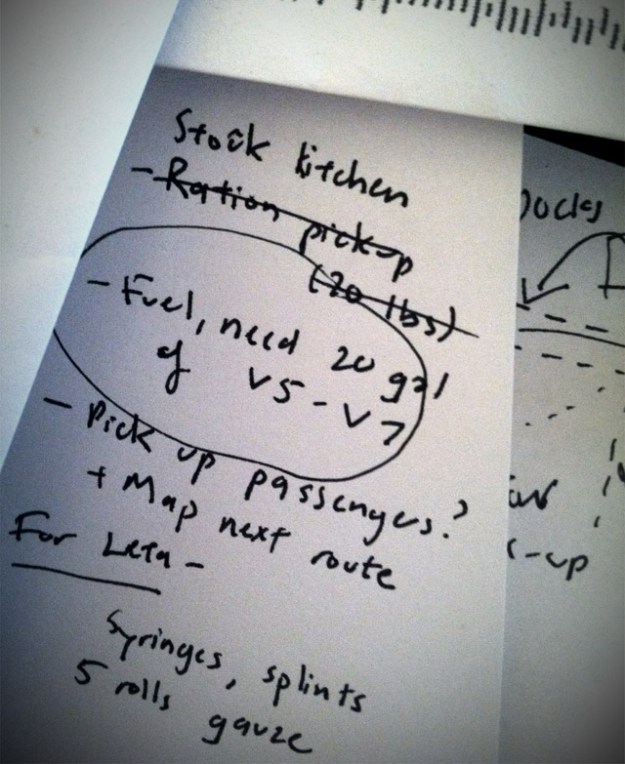 Stock kitchen
- Ration pickup
(20 lbs)
- Fuel, need 20 gal
of V5-V7
- Pick up passengers?
+ Map next route
For Leta -
Syringes, splints
5 rolls gauze
Docks
-up